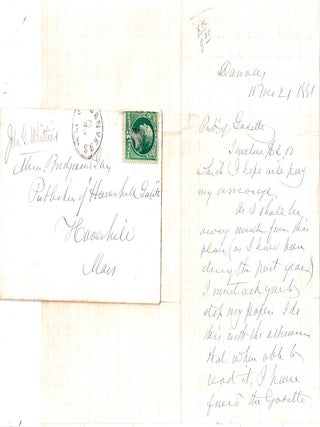 Danvers
11 Mo 21 1881
Pub. of Gazette
I enclose $
which I hope will pay
my arrearage.
As I shall be
away much from this
place (as I have been
during the past year)
I must ask you to
stop my paper. I do
this with the
that when able to
read it, I have
found the Gazette
John G. Whittier
DANVERS
Publisher of Haverhill Gazette
Haverhill
Mass